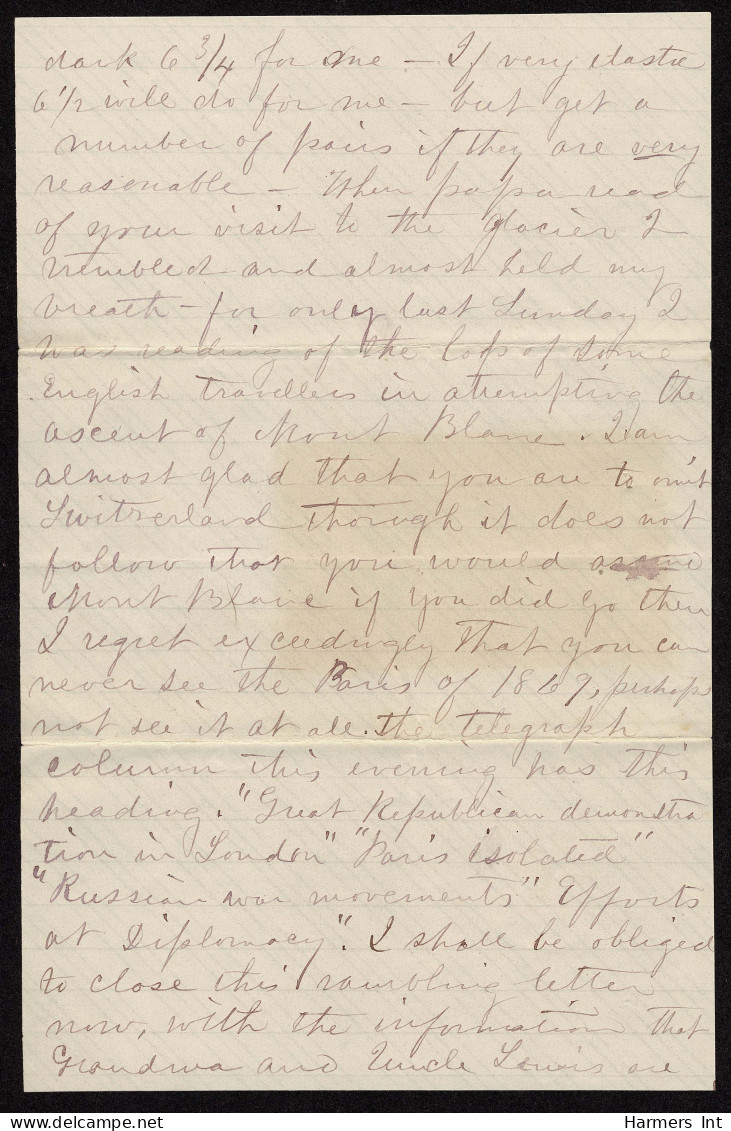 dark 6 3/4 for me – If very elastic
6 1/2 will do for me – but get a
number of pairs if they are very
reasonable – When papa read
of your visit to the glacier I
trembled and almost held my
breath – for only last Sunday I
was reading of the loss of some
English travellers in attempting the
ascent of Mont Blanc. I am
almost glad that you are to omit
Switzerland though it does not
follow that you would ascend
Mont Blanc if you did go then
I regret exceedingly that you can
never see the Paris of 1869, perhaps
not see it at all. The telegraph
column this evening has this
heading. "Great Republican demonstra
tion in London" "Paris isolated"
"Russian war movements" Efforts
at Diplomacy". I shall be obliged
to close this rambling letter
now, with the information that
Grandma and Uncle Lewis are
Harmers Int